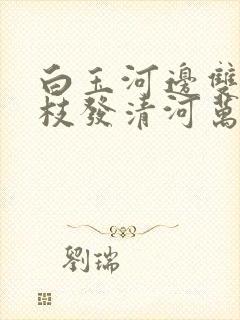 白玉河邊雙
枝發清河萬
劉瑞